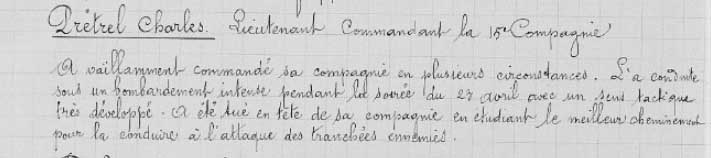 Prêtrel Charles. Lieutenant Commandant la 15e Compagnie
A vaillamment commandé sa compagnie en plusieurs circonstances. L'a conduite
sous un bombardement intense pendant la soirée du 27 avril avec un sens tactique
très développé. A été tué en tête de sa compagnie en étudiant le meilleur cheminement
pour la conduire à l'attaque des tranchées ennemies.